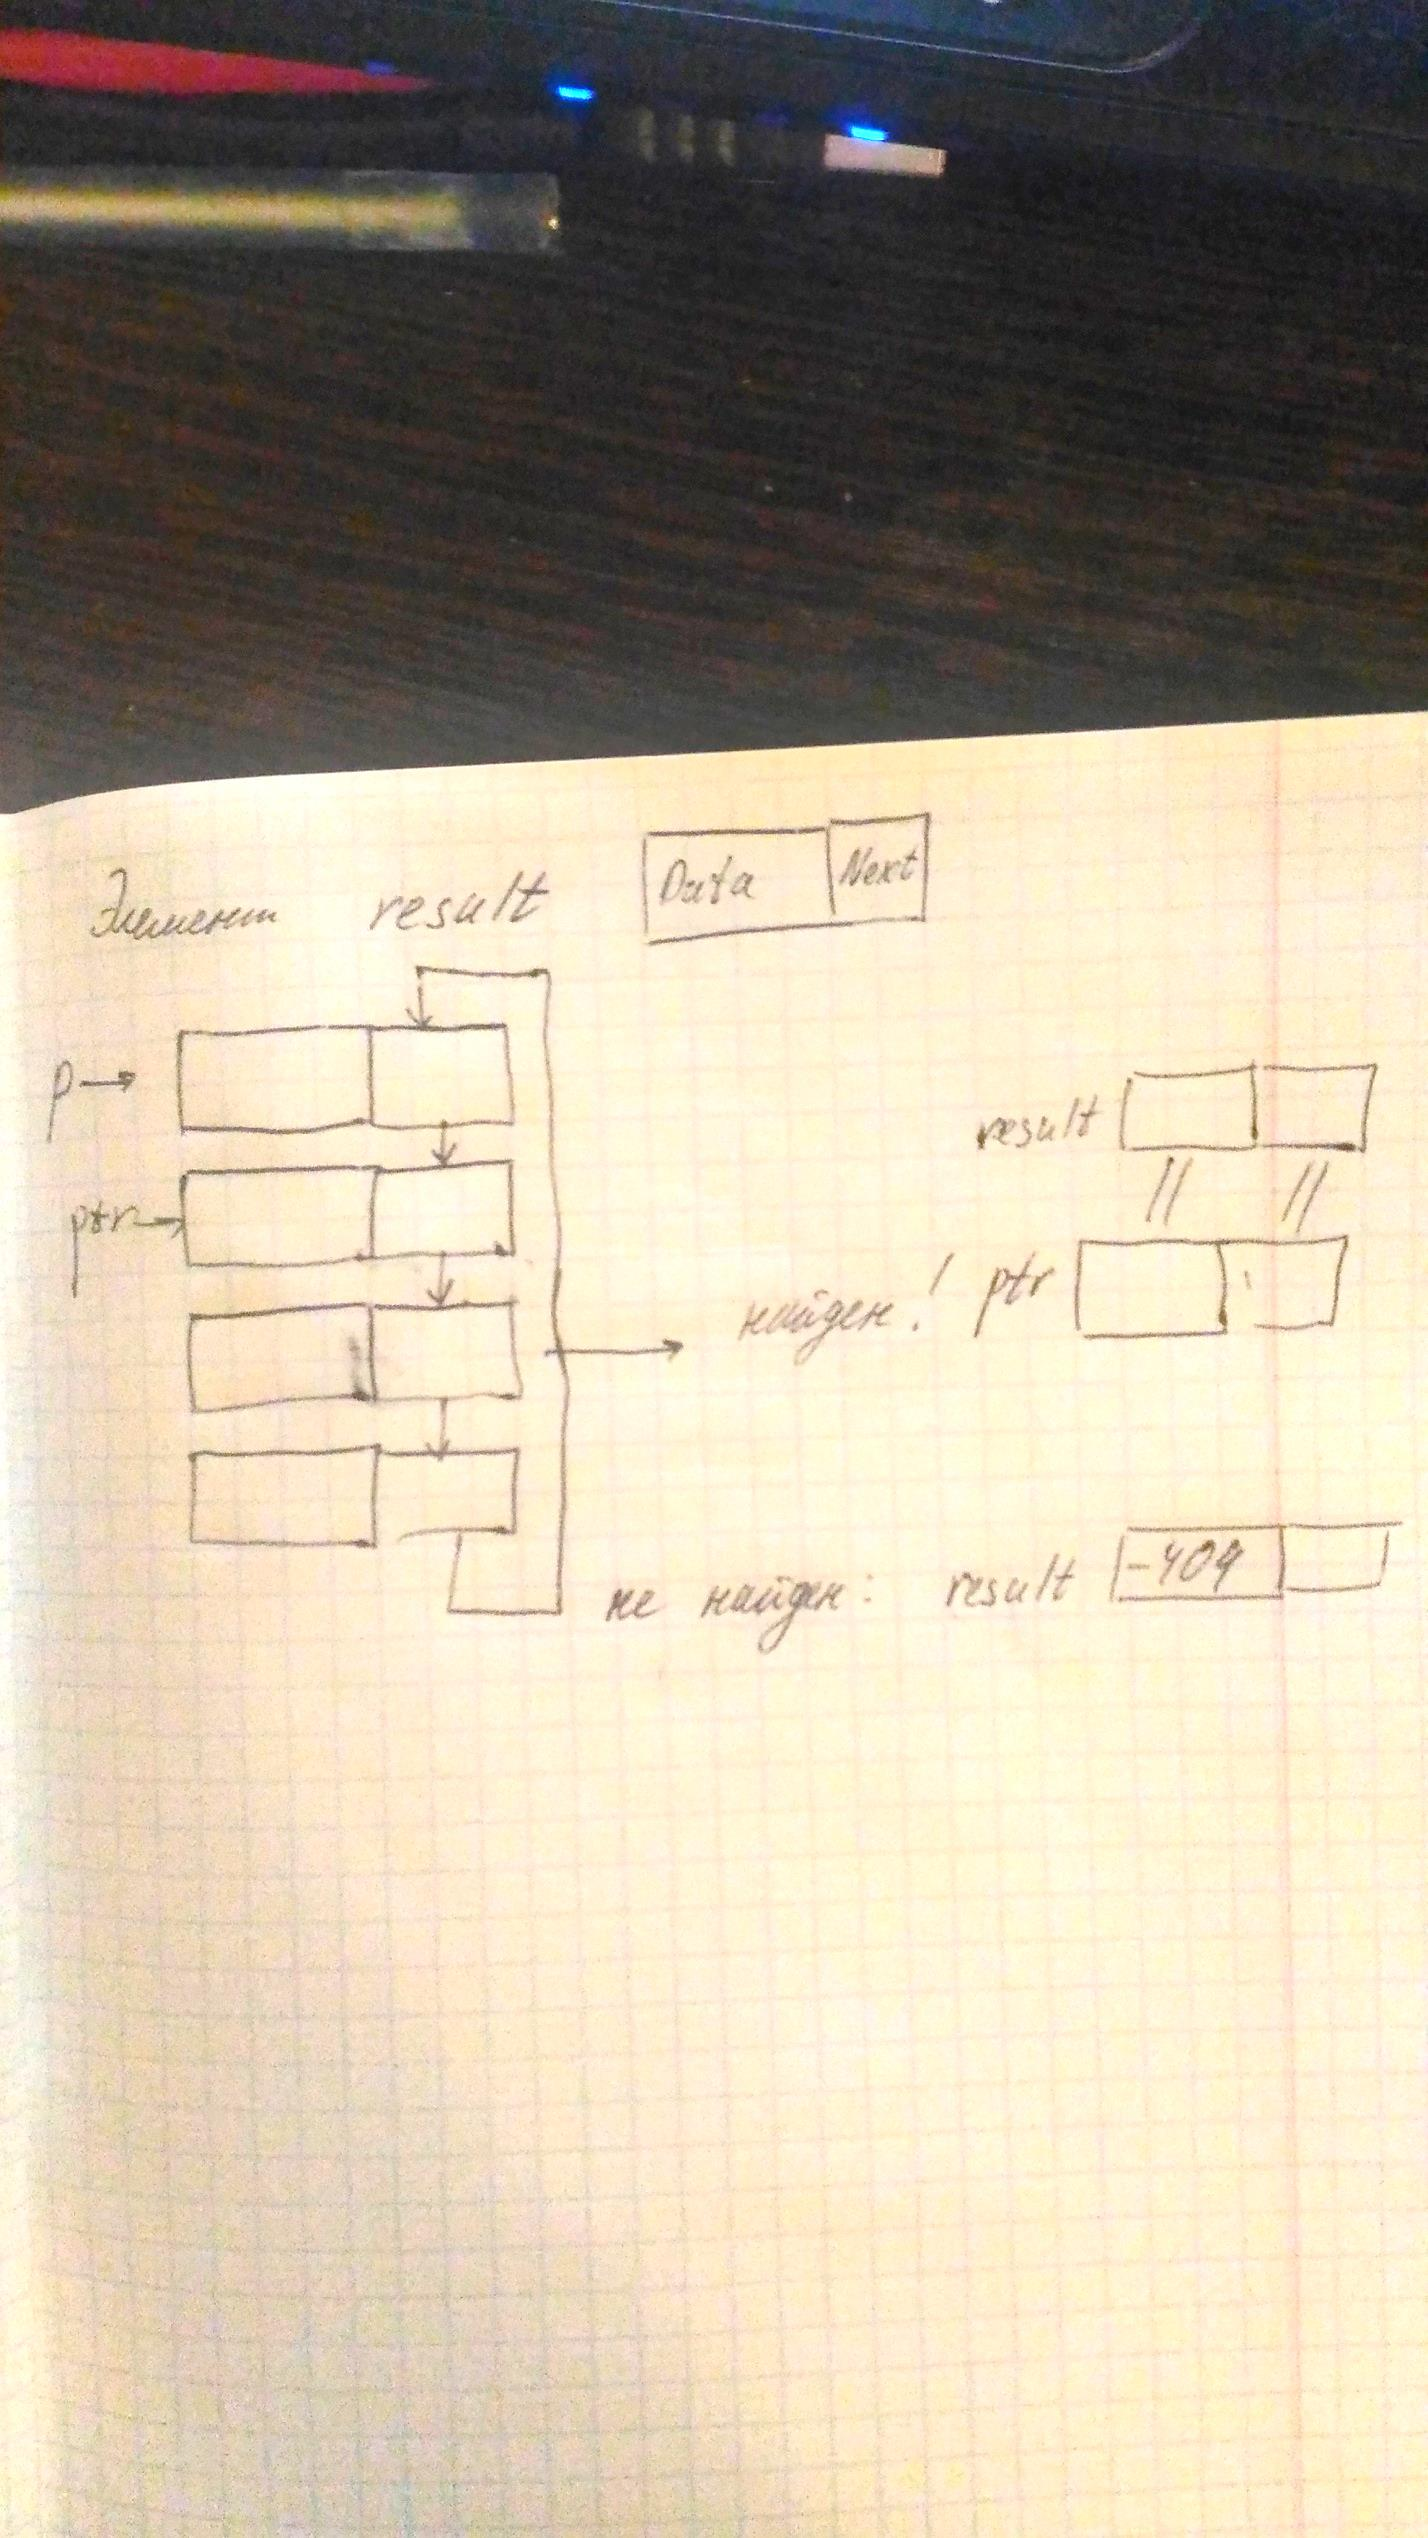 Элемент result Data Next
p
result
ptr
найден! ptr
не найден: result -404